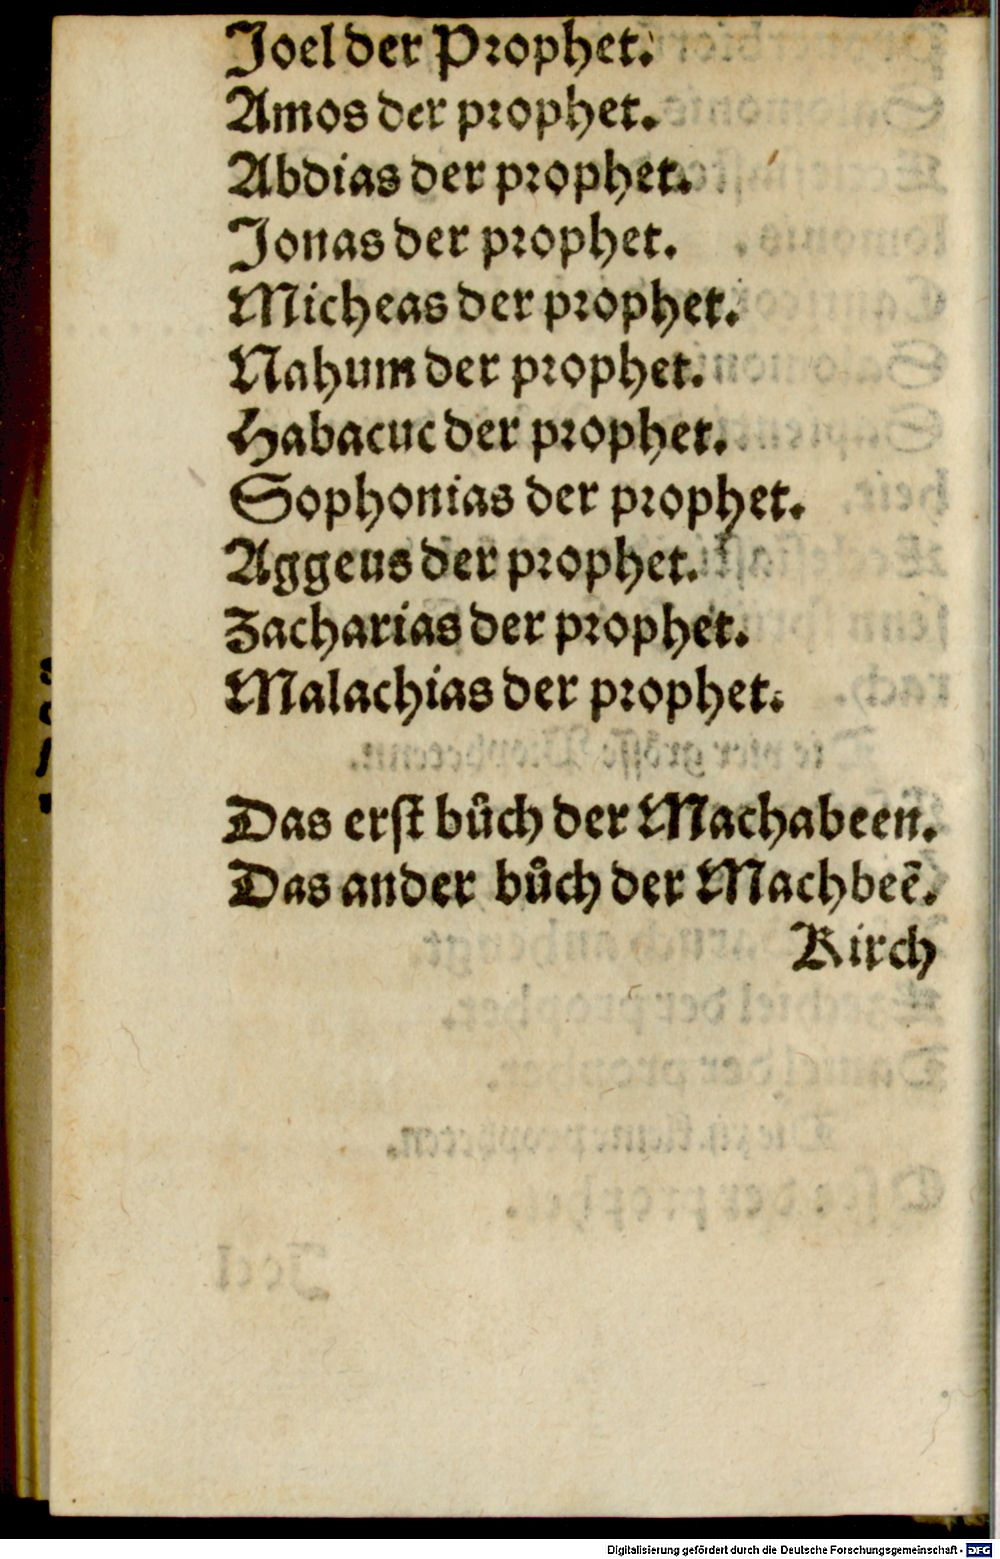 Joel der Prophet.
Amos der prophet.
Abdias der prophet.
Jonas der prophet.
Micheas der prophet.
Nahum der prophet.
Habacuc der prophet.
Sophonias der prophet.
Aggeus der prophet.
Zacharias der prophet.
Malachias der prophet.
Das erst bůch der Machabeen.
Das ander bůch der Machbeē.
Kirch
Digitalisierung gefördert durch die Deutsche Forschungsgemeinschaft - DFG